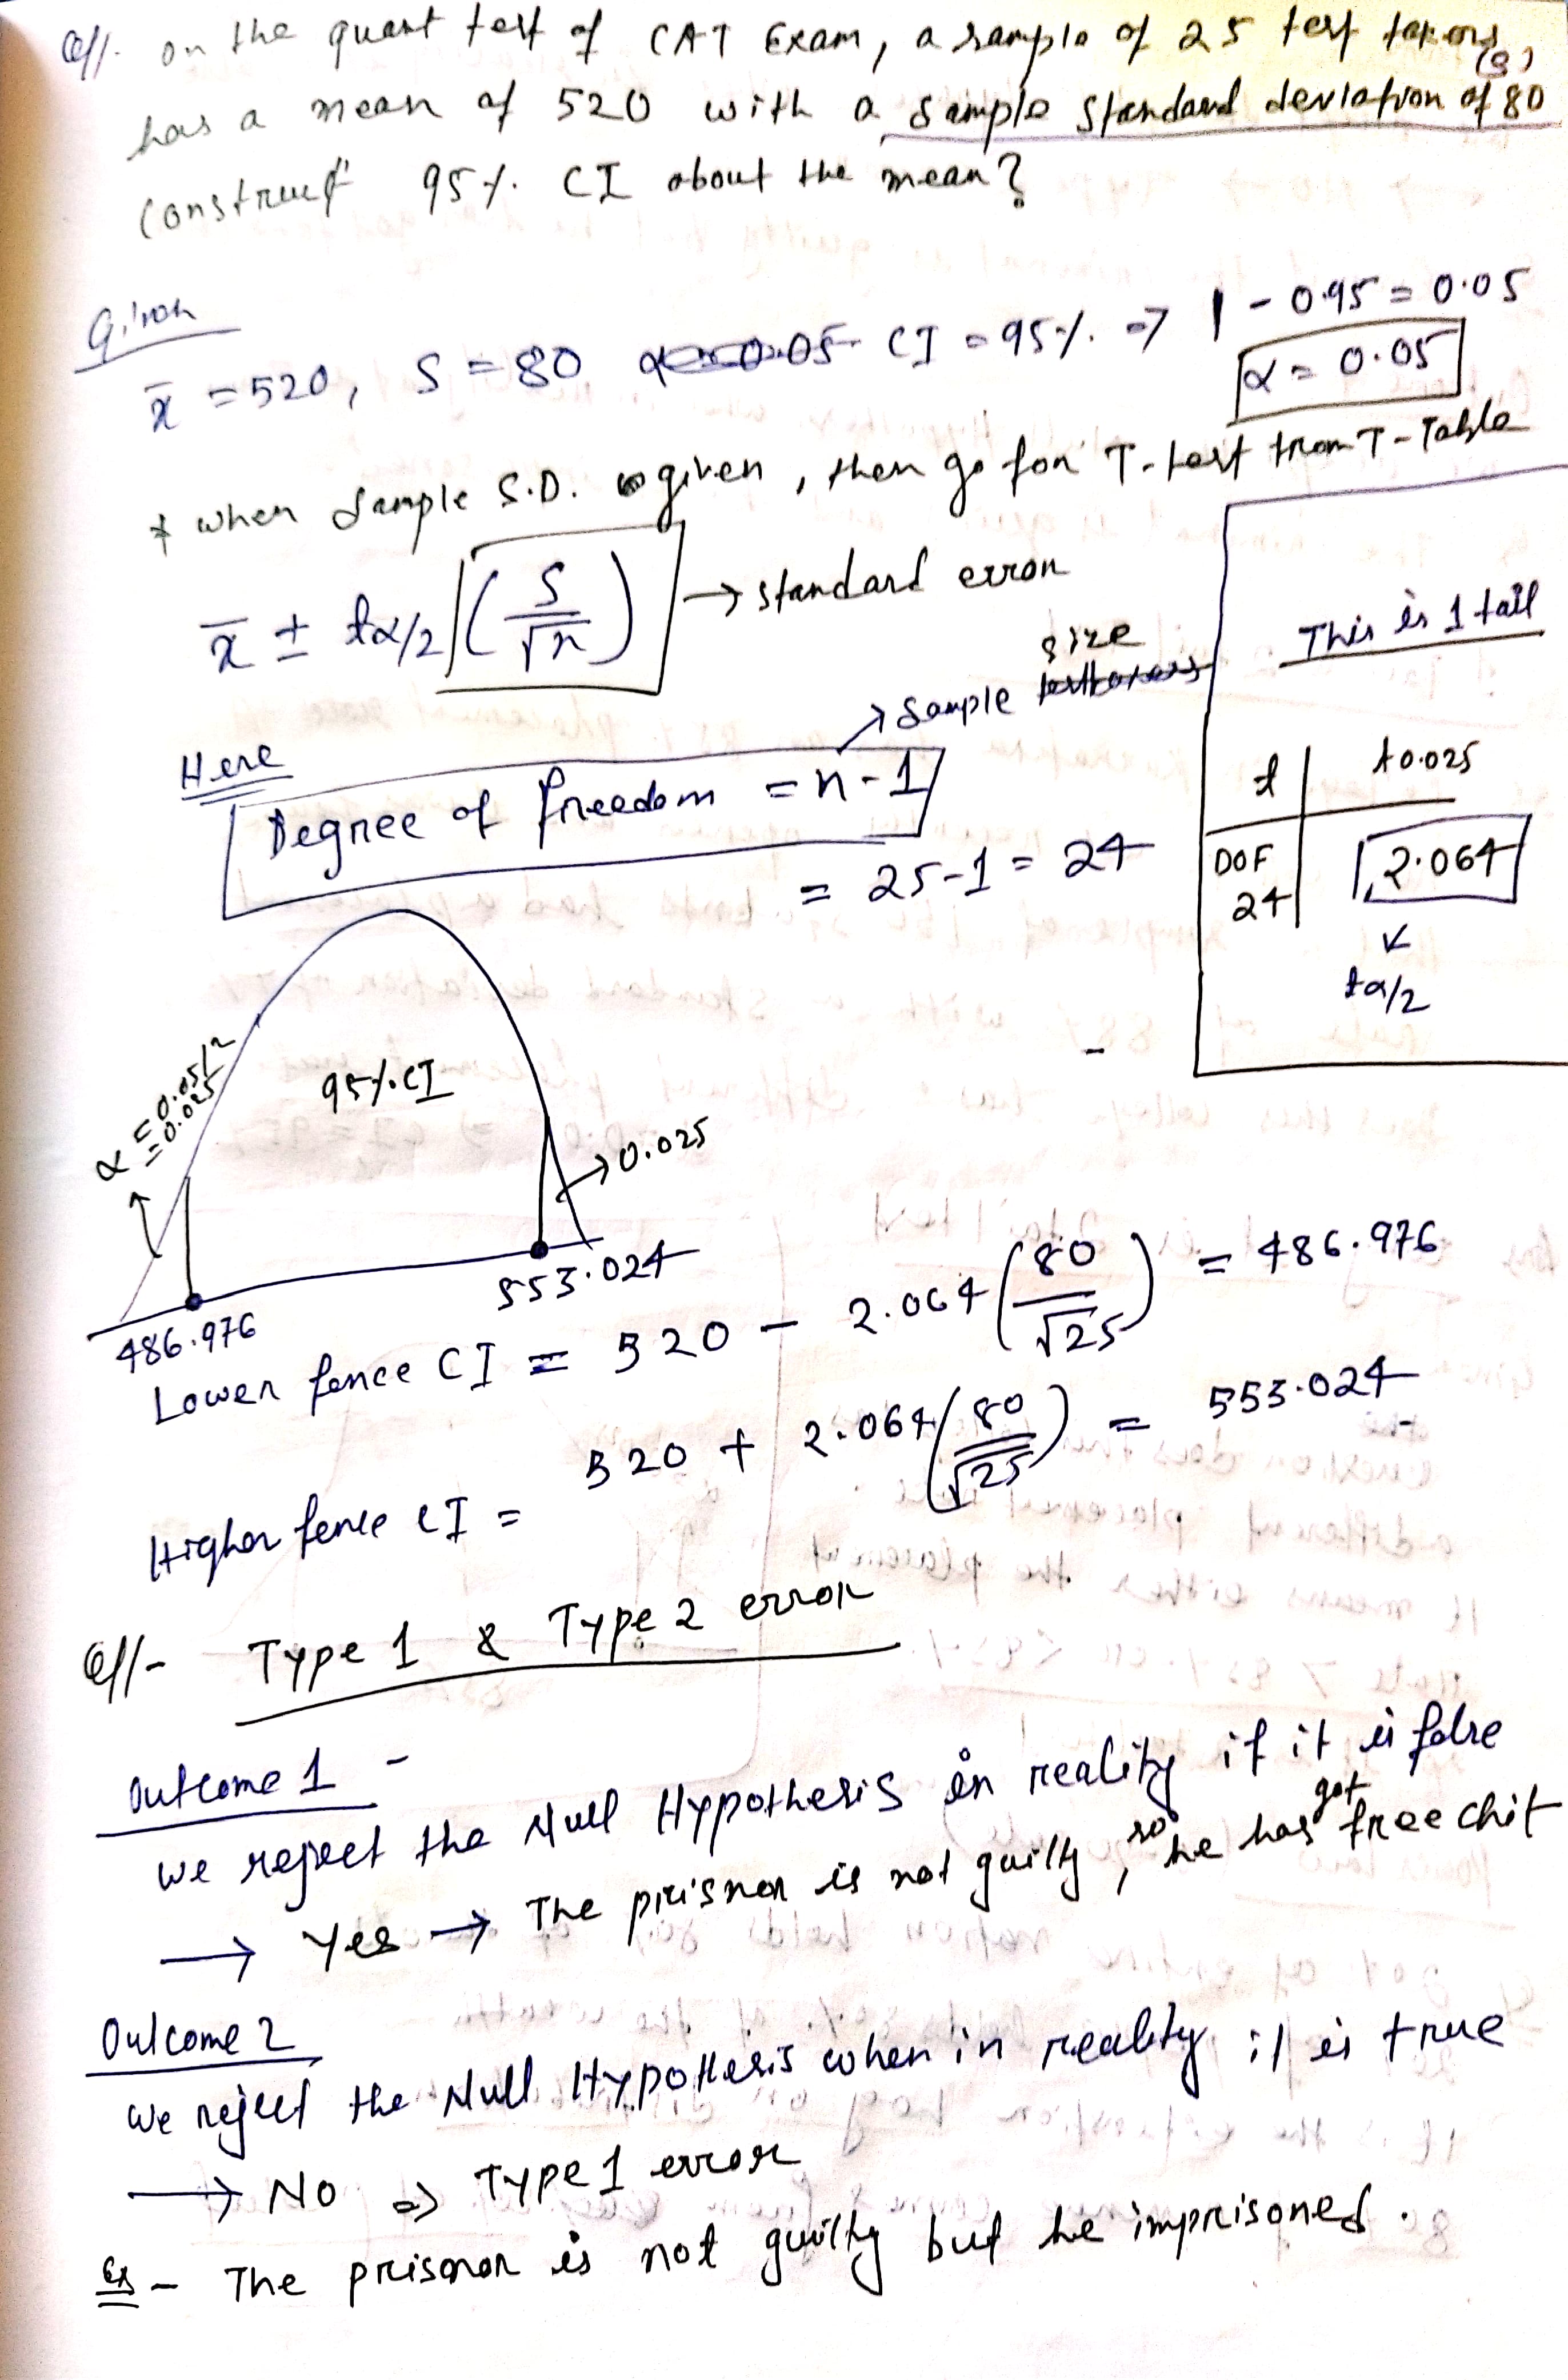 Q//- on the quant test of CAT Exam, a sample of 25 test takers,
has a mean of 520 with a sample standard deviation of 80
construct 95%. CI about the mean?
Given
x̄ = 520, S = 80 CI = 95%. => 1 - 0.95 = 0.05
α = 0.05
* when sample S.D. is given, then go for T-test from T-Table
x̄ ± tα/2 (S/√n) → standard error
This is 1 tail
→ sample size
Here
Degree of freedom = n-1
= 25-1 = 24
t t0.025
DOF 24 2.064
tα/2
α = 0.05/2
= 0.025
95%.CI
→ 0.025
486.976
553.024
Lower fence CI = 520 - 2.064 (80/√25) = 486.976
Higher fence CI = 520 + 2.064 (80/√25) = 553.024
Q//- Type 1 & Type 2 error
Outcome 1 -
we reject the Null Hypothesis in reality if it is false
→ Yes → The prisner is not guilty, so he has got free chit
Outcome 2
we reject the Null Hypothesis when in reality it is true
→ No => Type 1 error
Ex - The prisoner is not guilty but he imprisoned.